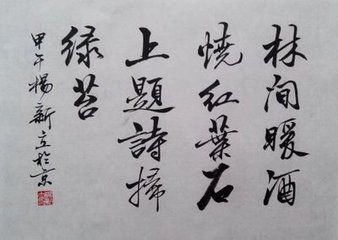 林间暖酒
燒红葉石
上題詩掃
绿苔
甲午楊新立於京